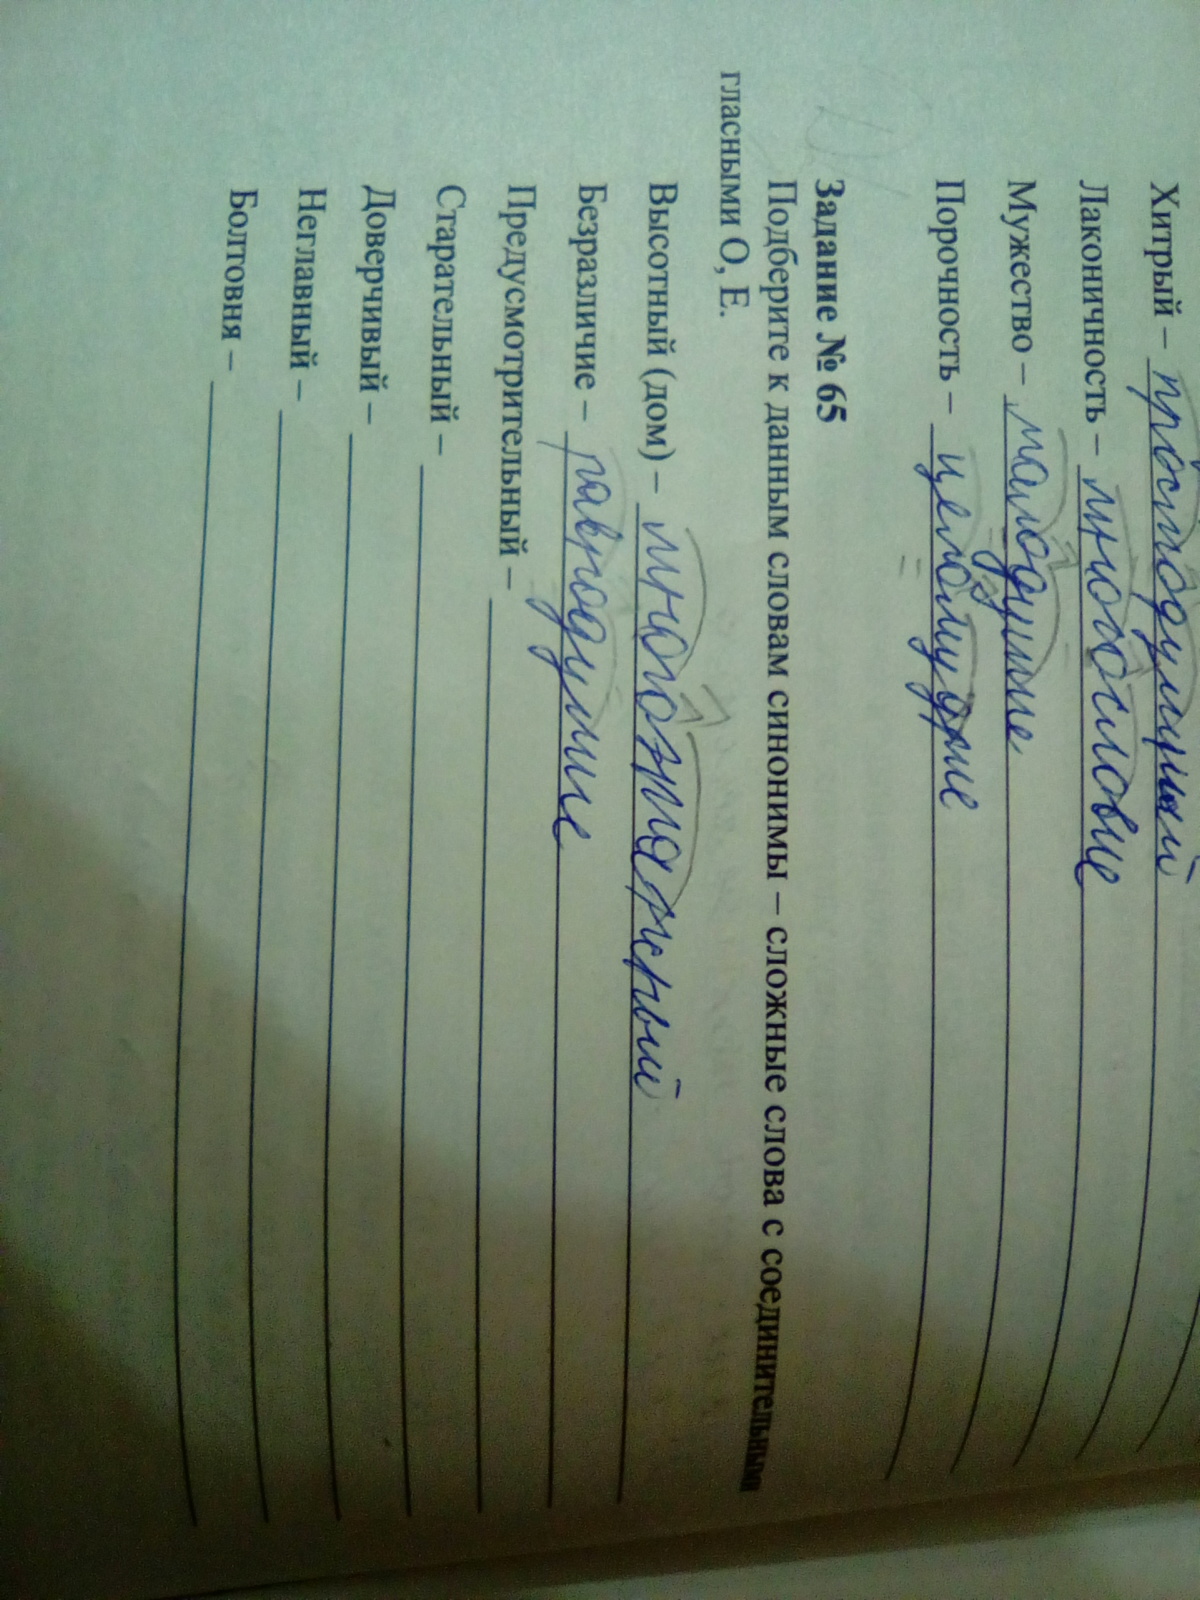 Хитрый – простодушный
Лаконичность – многословие
Мужество – малодушие
Порочность – целомудрие
Задание № 65
Подберите к данным словам синонимы – сложные слова с соединительными
гласными О, Е.
Высотный (дом) – многоэтажный
Безразличие – равнодушие
Предусмотрительный –
Старательный –
Доверчивый –
Неглавный –
Болтовня –